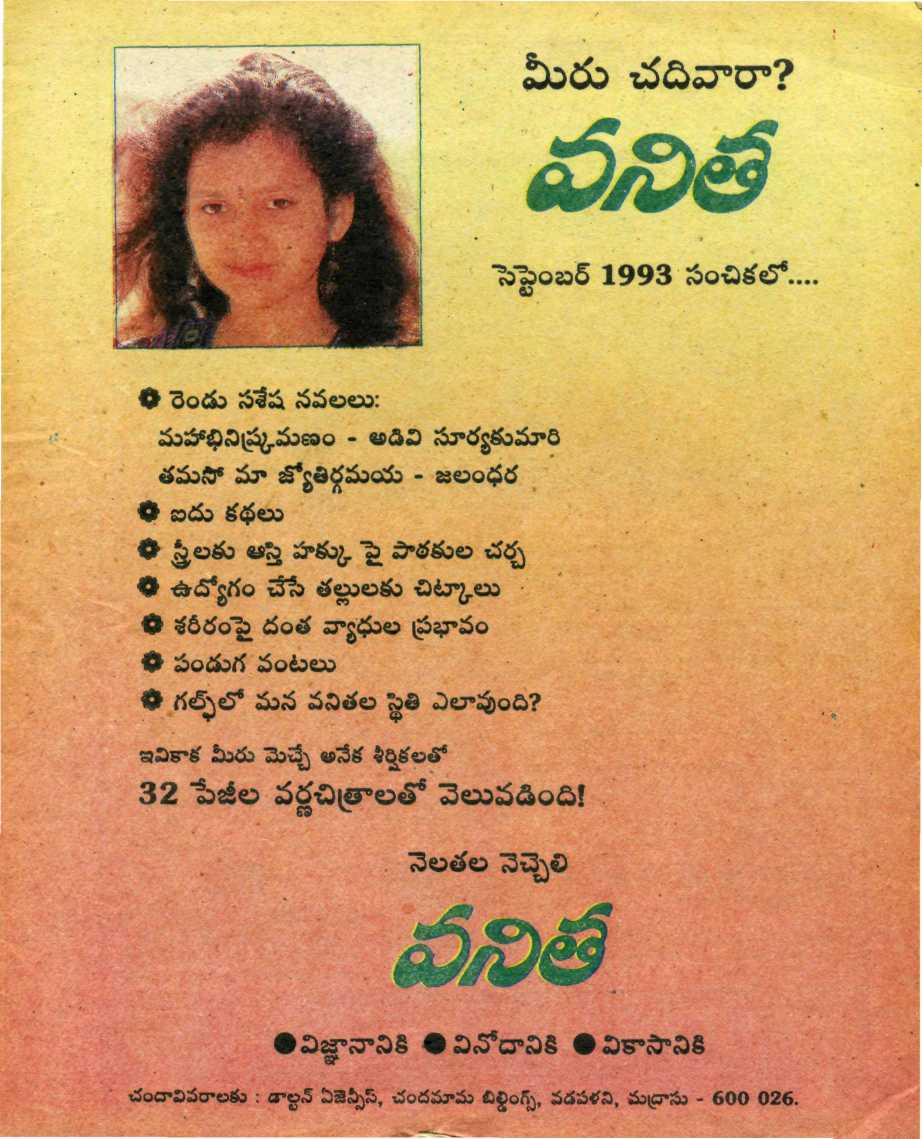 మీరు చదివారా?
వనిత
సెప్టెంబర్ 1993 సంచికలో....
రెండు సశేష నవలలు:
మహాభినిష్క్రమణం - అడివి సూర్యకుమారి
తమసో మా జ్యోతిర్గమయ - జలంధర
ఐదు కథలు
స్త్రీలకు ఆస్తి హక్కు పై పాఠకుల చర్చ
ఉద్యోగం చేసే తల్లులకు చిట్కాలు
శరీరంపై దంత వ్యాధుల ప్రభావం
పండుగ వంటలు
గల్ఫ్‌లో మన వనితల స్థితి ఎలావుంది?
ఇవికాక మీరు మెచ్చే అనేక శీర్షికలతో
32 పేజీల వర్ణచిత్రాలతో వెలువడింది!
నెలతల నెచ్చెలి
వనిత
●విజ్ఞానానికి ●వినోదానికి ●వికాసానికి
చందావివరాలకు : డాల్టన్ ఏజెన్సీస్, చందమామ బిల్డింగ్స్, వడపళని, మద్రాసు - 600 026.